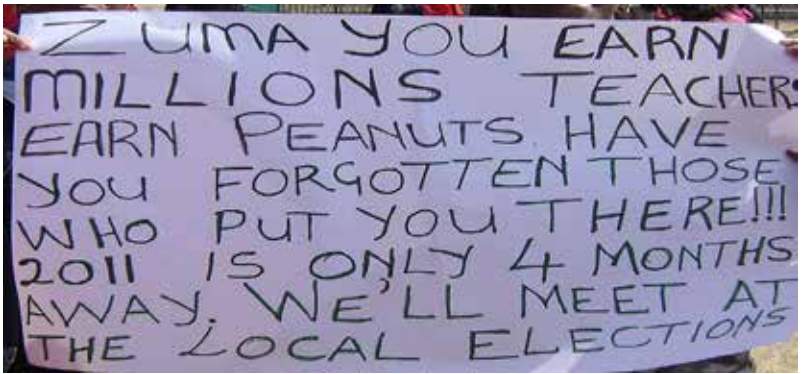 ZUMA YOU EARN
MILLIONS TEACHERS
EARN PEANUTS. HAVE
YOU FORGOTTEN THOSE
WHO PUT YOU THERE!!!
2011 IS ONLY 4 MONTHS
AWAY. WE'LL MEET AT
THE LOCAL ELECTIONS